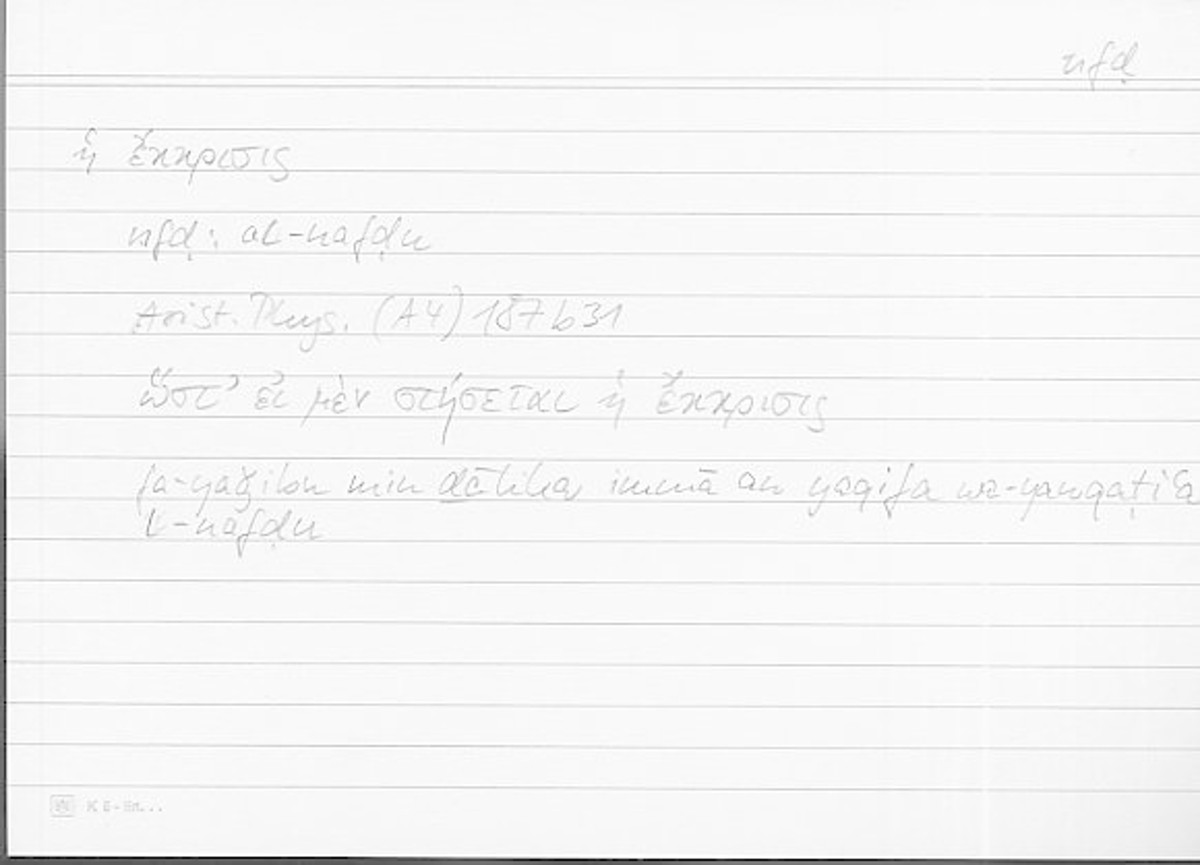 nfḍ
ἡ ἔκκρισις
nfḍ: al-nafḍu
Arist. Phys. (A4) 187b31
ὥστ' εἰ μὲν στήσεται ἡ ἔκκρισις
fa-yaǧibu min ḏālika immā an yaqifa wa-yanqaṭiʿa
l-nafḍu